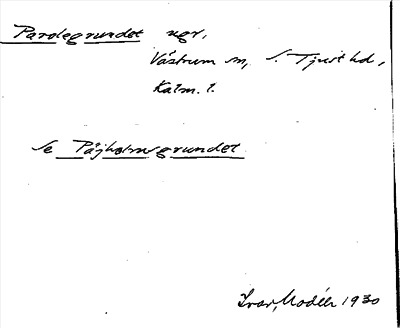 Parolegrundet ugr,
Västrum sn, S. Tjust hd,
Kalm. l.
Se Påjholmsgrundet
Ivar Modéer 1930